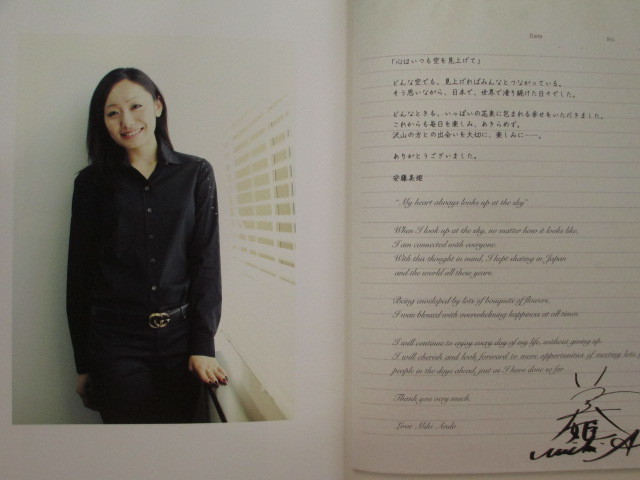 Date No.
「心はいつも空を見上げて」
どんな空でも、見上げればみんなとつながっている。
そう思いながら、日本で、世界で滑り続けた日々でした。
どんなときも、いっぱいの花束に包まれる幸せをいただきました。
これからも毎日を楽しみ、あきらめず。
沢山の方との出会いを大切に、楽しみに――。
ありがとうございました。
安藤美姫
"My heart always looks up at the sky"
When I look up at the sky, no matter how it looks like,
I am connected with everyone.
With this thought in mind, I kept skating in Japan
and the world all these years.
Being enveloped by lots of bouquets of flowers,
I was blessed with overwhelming happiness at all times.
I will continue to enjoy every day of my life, without giving up.
I will cherish and look forward to more opportunities of meeting lots
people in the days ahead, just as I have done so far.
Thank you very much.
Love Miki Ando